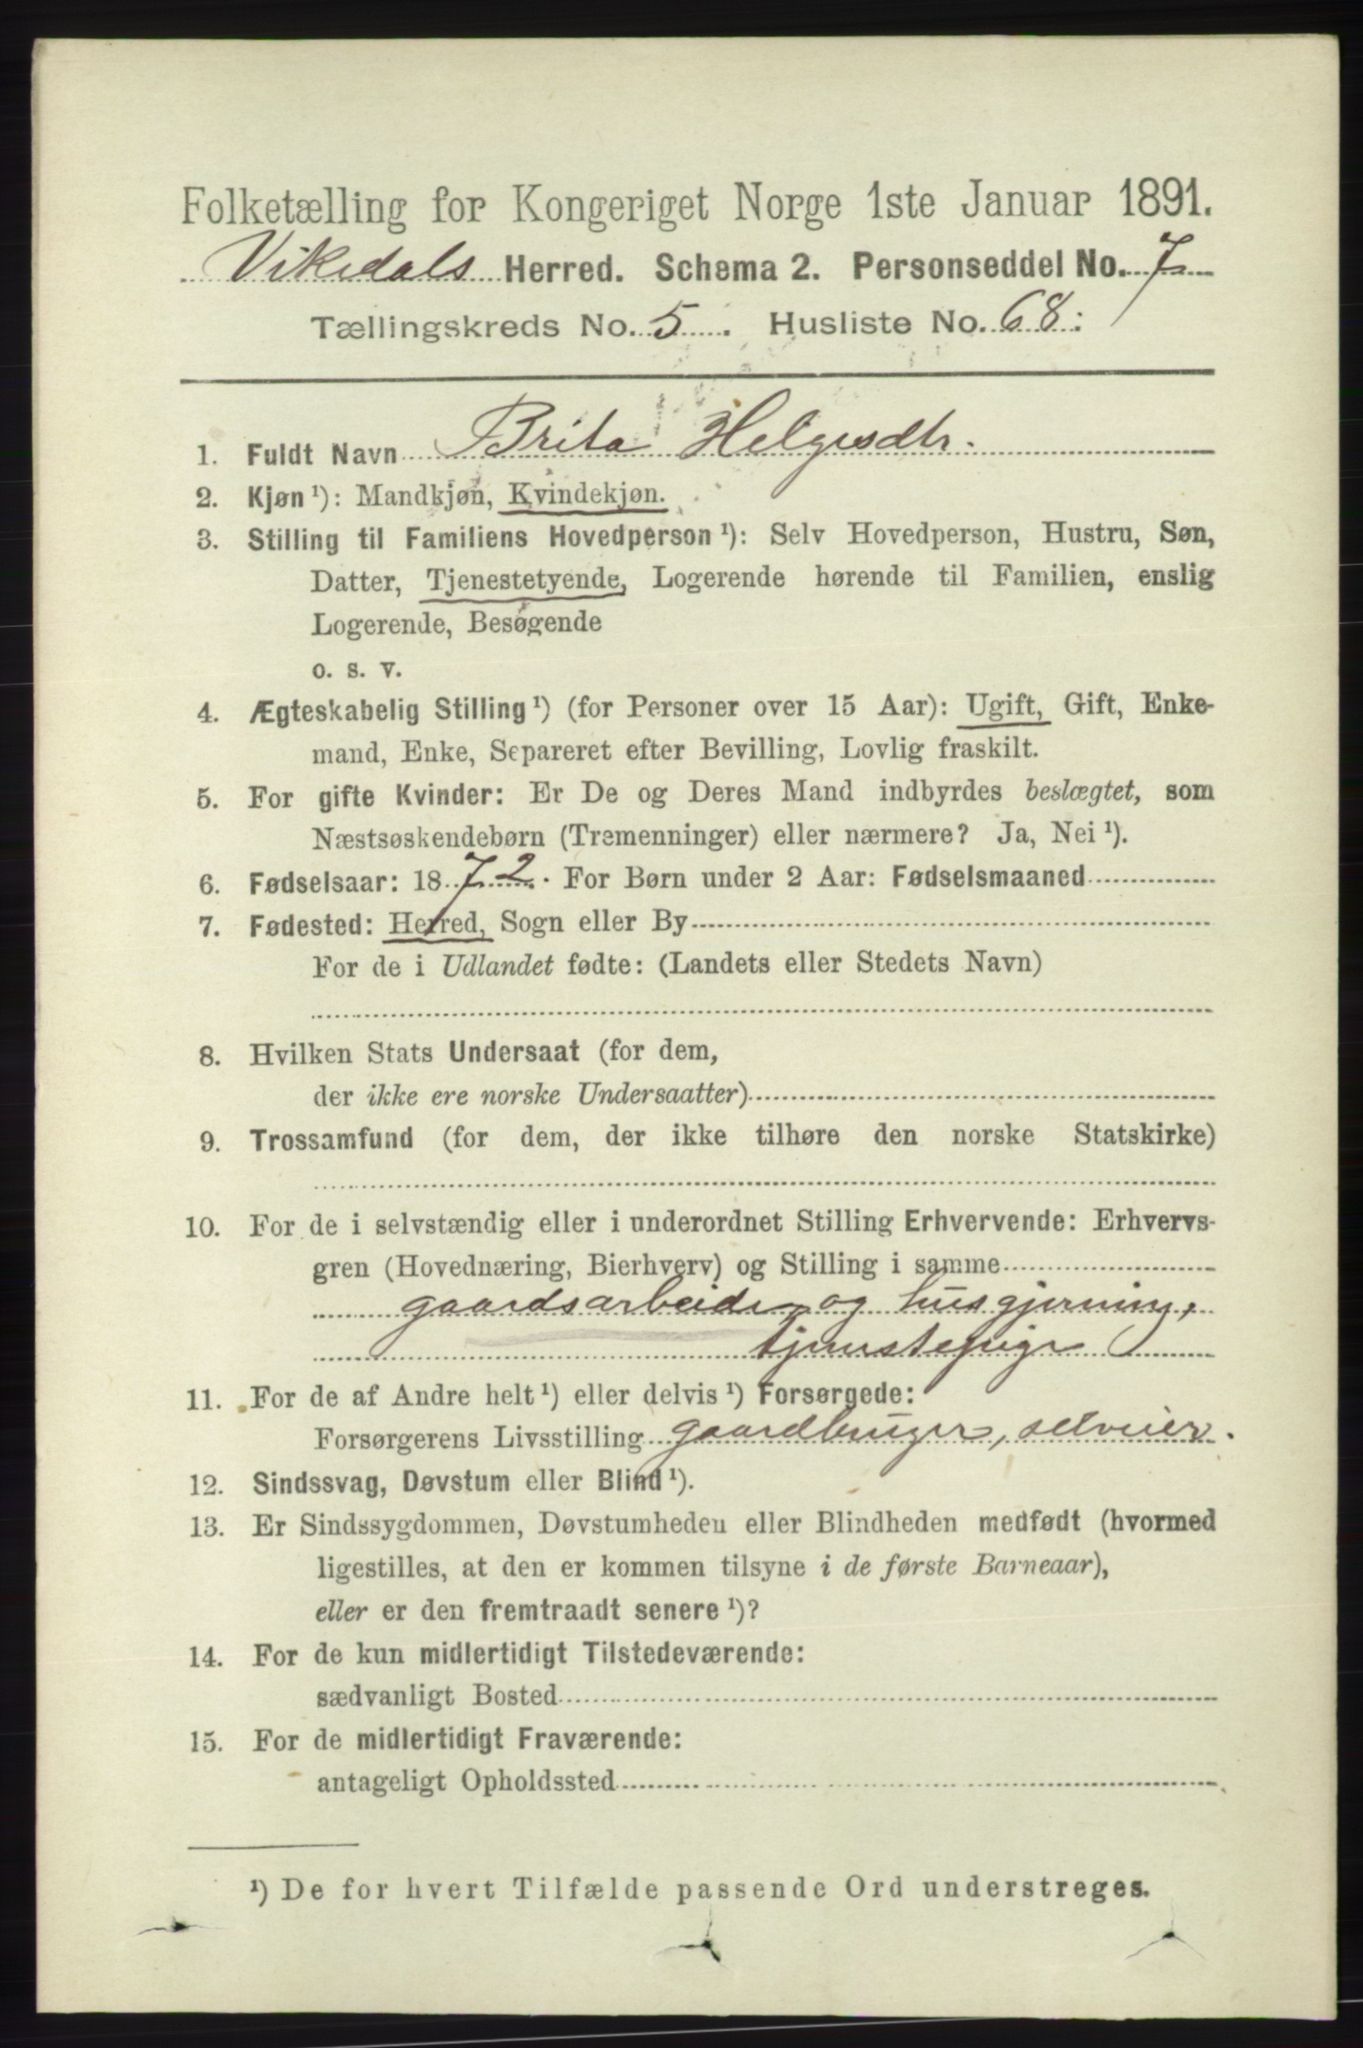 Folketælling for Kongeriget Norge 1ste Januar 1891.
Vikedals Herred. Schema 2. Personseddel No. 7
Tællingskreds No. 5. Husliste No. 68:
1. Fuldt Navn Brita Helgesdtr.
2. Kjøn¹): Mandkjøn, Kvindekjøn.
3. Stilling til Familiens Hovedperson¹): Selv Hovedperson, Hustru, Søn,
Datter, Tjenestetyende, Logerende hørende til Familien, enslig
Logerende, Besøgende
o. s. v.
4. Ægteskabelig Stilling¹) (for Personer over 15 Aar): Ugift, Gift, Enke-
mand, Enke, Separeret efter Bevilling, Lovlig fraskilt.
5. For gifte Kvinder: Er De og Deres Mand indbyrdes beslægtet, som
Næstsøskendebørn (Tremenninger) eller nærmere? Ja, Nei¹).
6. Fødselsaar: 1872. For Børn under 2 Aar: Fødselsmaaned
7. Fødested: Herred, Sogn eller By
For de i Udlandet fødte: (Landets eller Stedets Navn)
8. Hvilken Stats Undersaat (for dem,
der ikke ere norske Undersaatter)
9. Trossamfund (for dem, der ikke tilhøre den norske Statskirke)
10. For de i selvstændig eller i underordnet Stilling Erhvervende: Erhvervs-
gren (Hovednæring, Bierhverv) og Stilling i samme
gaardsarbeide og husgjerning,
tjenstepige
11. For de af Andre helt¹) eller delvis¹) Forsørgede:
Forsørgerens Livsstilling gaardbruger, selveier.
12. Sindssvag, Døvstum eller Blind¹).
13. Er Sindssygdommen, Døvstumheden eller Blindheden medfødt (hvormed
ligestilles, at den er kommen tilsyne i de første Barneaar),
eller er den fremtraadt senere¹)?
14. For de kun midlertidigt Tilstedeværende:
sædvanligt Bosted
15. For de midlertidigt Fraværende:
antageligt Opholdssted
¹) De for hvert Tilfælde passende Ord understreges.